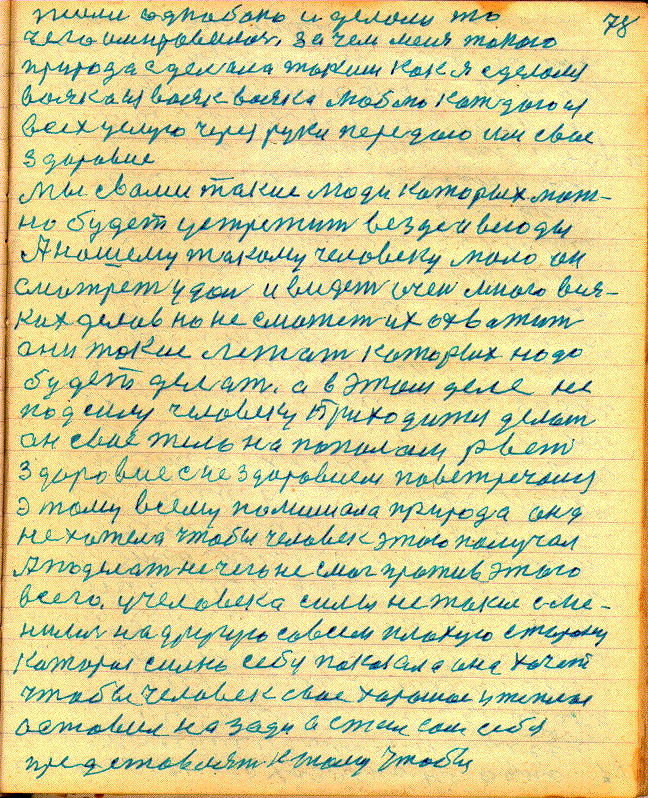 78
жили однобоко и делали то
чего им нравилос. Зачем меня такого
природа сделала таким как я сделался
всех целую через руки передаю им свое
здоровие
Мы свами такие люди которых мож-
но будет устретит везде и всюды
Анашему такому человеку мало он
смотрет удал и видет очен много вся-
ких делов но не сможет их охватит
они такие лежат которых надо
будет делат. а в этом деле не
под силу человеку приходится делат
он свое тело на пополам рвет
здоровие с не здоровием повстречался
этому всему помишала природа она
не хотела чтобы человек этого получал
Аподелат не чего не смог против этого
всего. у человека силы не такие сме-
нилис на другую совсем плохую сторону
которая силно себя показала она хочет
чтобы человек свое хорошое итеплое
оставил на зади а стал сам себя
представлят к тому чтобы